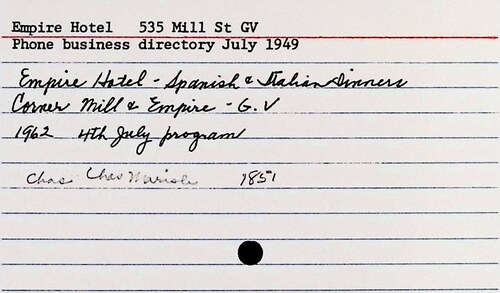 Empire Hotel   535 Mill St GV
Phone business directory July 1949
Empire Hotel - Spanish & Italian Dinners
Corner Mill & Empire - G.V
1962   4th July program
Chas   Chas   1851